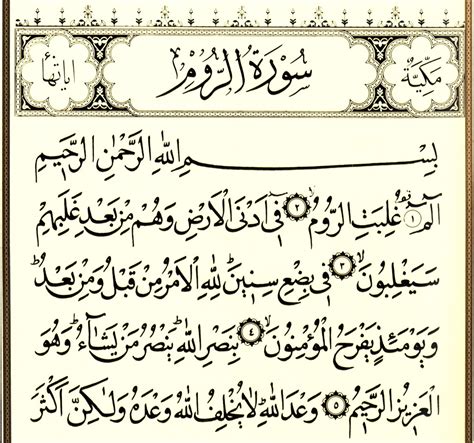 سُورَةُ الرُّومِ
مَكِّيَّة
اياتها
بِسْمِ اللهِ الرَّحْمٰنِ الرَّحِيمِ
الٓمٓ ۝١ غُلِبَتِ الرُّومُ ۝٢ فِٓي اَدْنَى الْاَرْضِ وَهُمْ مِنْ بَعْدِ غَلَبِهِمْ
سَيَغْلِبُونَ ۝٣ فِي بِضْعِ سِنِينَ لِلّٰهِ الْاَمْرُ مِنْ قَبْلُ وَمِنْ بَعْدُ ط
وَيَوْمَئِذٍ يَفْرَحُ الْمُؤْمِنُونَ ۝٤ بِنَصْرِ اللهِ ط يَنْصُرُ مَنْ يَشَٓاءُ ط وَهُوَ
الْعَزِيزُ الرَّحِيمُ ۝٥ وَعْدَ اللهِ ط لَا يُخْلِفُ اللهُ وَعْدَهُ وَلٰكِنَّ اَكْثَرَ